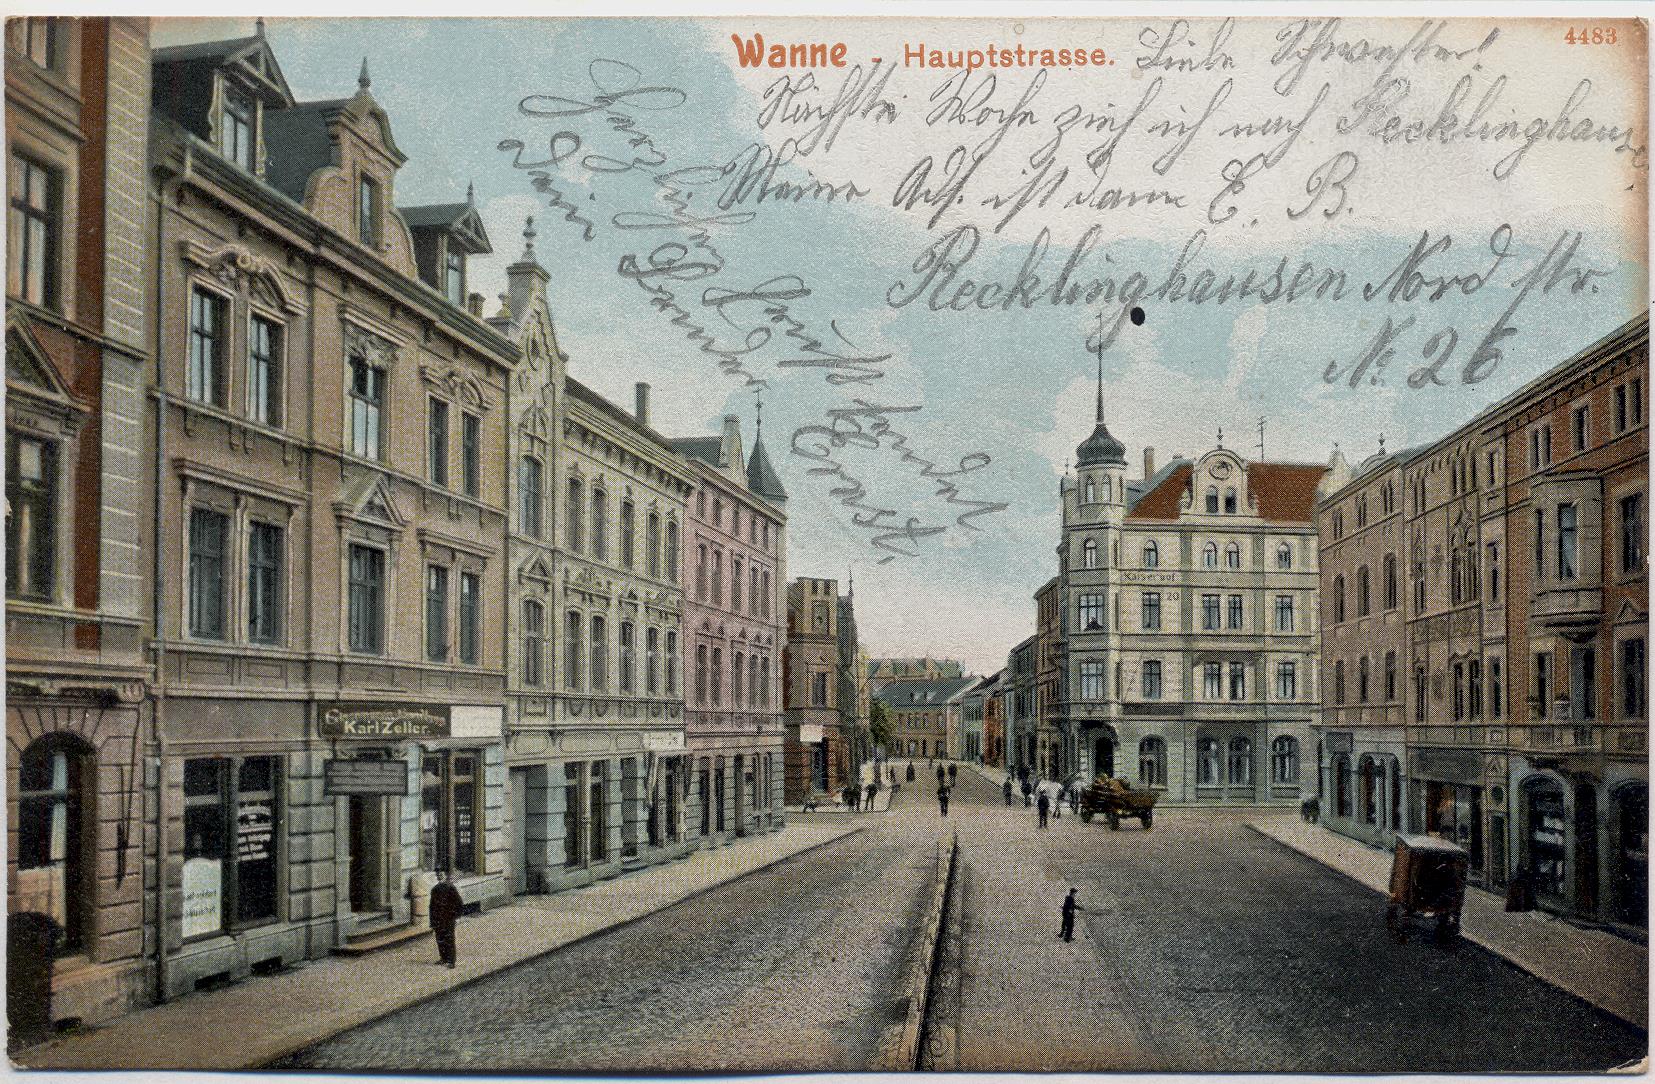 Wanne - Hauptstrasse.
4483
Liebe Schwester!
Nächste Woche zieh ich nach Recklinghausen.
Meine Adr. ist dann E. B.
Recklinghausen Nord str.
No. 26
Herzlichen Gruß
Dein Bruder Ernst
Karl Zeller
Kaiserhof
20